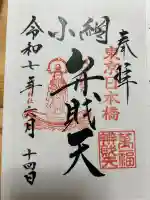 奉拝
東京日本橋
小網
弁財天
萬福
令和七年六月十四日